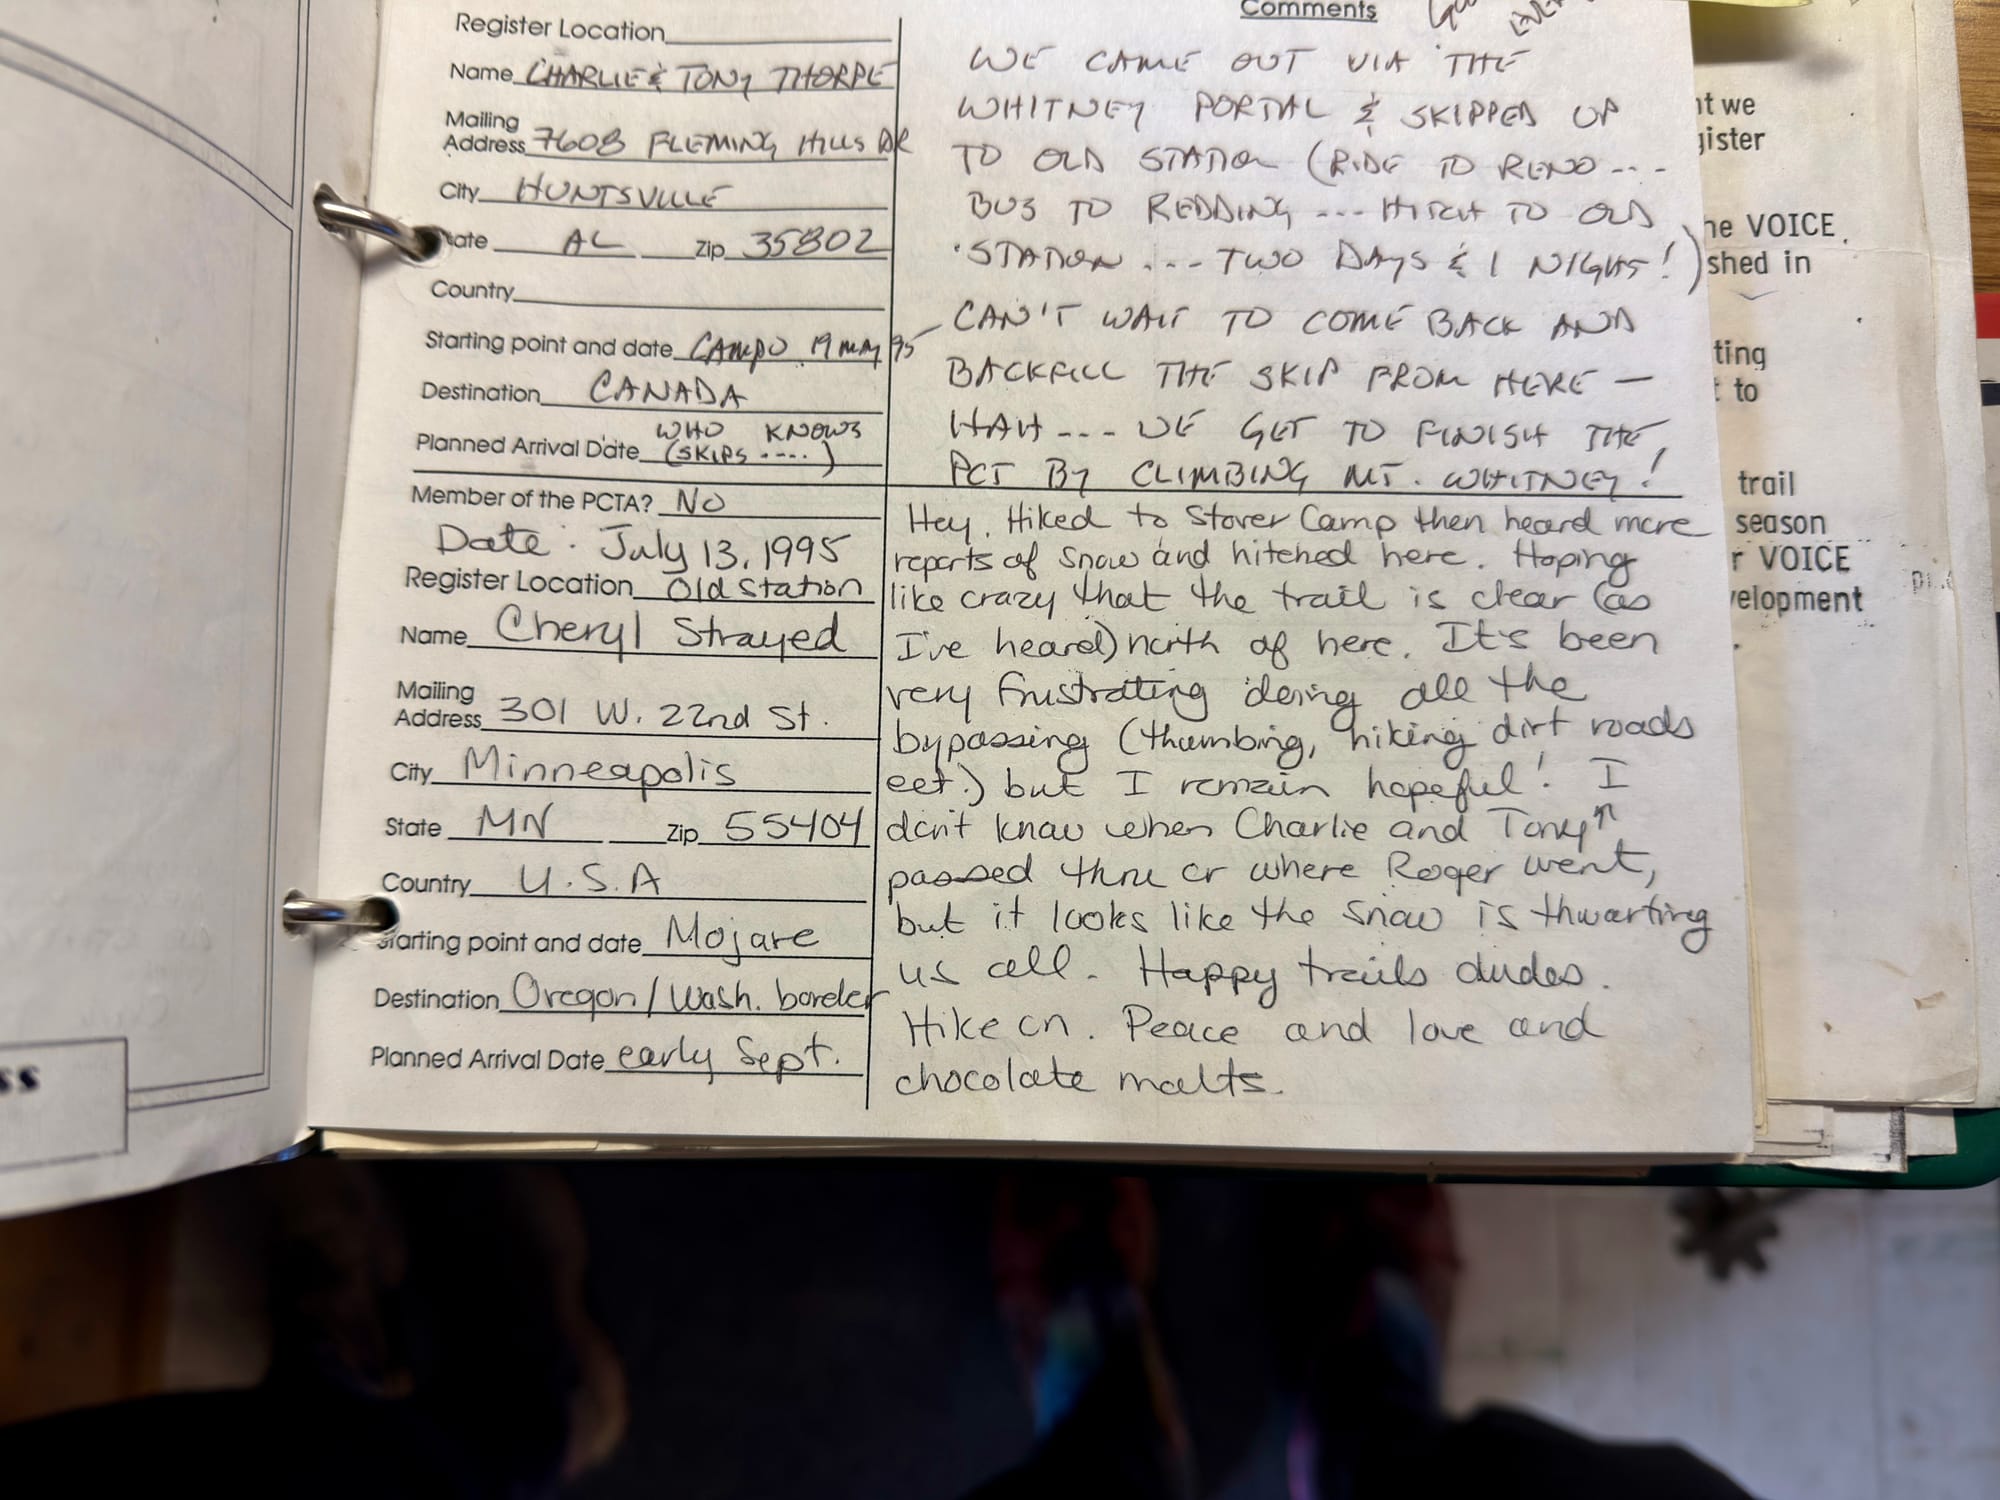 Comments
Register Location
Name CHARLIE & TONY THORPE
Mailing
Address 7608 FLEMING HILLS DR
City HUNTSVILLE
State AL Zip 35802
Country
Starting point and date CAMPO 19 MAY 95
Destination CANADA
Planned Arrival Date WHO KNOWS
(SKIPS ....)
WE CAME OUT VIA THE
WHITNEY PORTAL & SKIPPED UP
TO OLD STATION (RIDE TO RENO ...
BUS TO REDDING ... HITCH TO OLD
STATION ... TWO DAYS & 1 NIGHT!)
CAN'T WAIT TO COME BACK AND
BACKFILL THE SKIP FROM HERE —
HAH ... WE GET TO FINISH THE
PCT BY CLIMBING MT. WHITNEY!
Member of the PCTA? NO
Date: July 13, 1995
Register Location Old Station
Name Cheryl Strayed
Mailing
Address 301 W. 22nd St.
City Minneapolis
State MN Zip 55404
Country U.S.A
Starting point and date Mojave
Destination Oregon/Wash. border
Planned Arrival Date early Sept.
Hey. Hiked to Stover Camp then heard more
reports of snow and hitched here. Hoping
like crazy that the trail is clear (as
I've heard) north of here. It's been
very frustrating doing all the
bypassing (thumbing, hiking dirt roads
ect.) but I remain hopeful! I
don't know when Charlie and Tony ↑
passed thru or where Roger went,
but it looks like the snow is thwarting
us all. Happy trails dudes.
Hike on. Peace and love and
chocolate malts.
we
VOICE
shed in
ting
to
trail
season
VOICE
ss